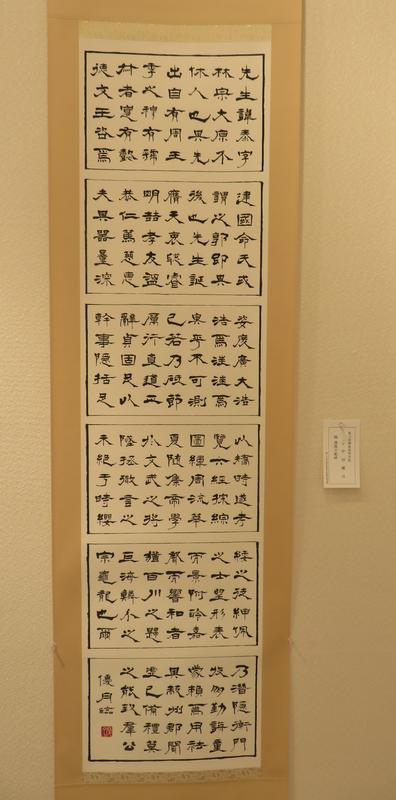 先生諱泰字
林宗大原
休人也其先
出自有周王
季之有
者寔有懿
德文王咨焉
建國命氏或
謂之郭即其
後也先生誕
膺天衷聡睿
明喆孝友温
恭仁篤慈惠
夫其器量深
姿度廣大浩
浩焉汪汪焉
奧乎不可測
已若乃砥節
厲行直道正
辭貞固足以
幹事隱括足
以矯時遂考
覽六經探綜
圖緯周流華
夏隨集帝學
收文武之將
墜拯微言之
未絕于時纓
緌之徒紳佩
之士望形表
而景附聆嘉
聲而響和者
猶百川之歸
巨海鱗介之
宗龜龍也爾
乃潛隱衡門
收朋勤誨童
蒙賴焉用祛
其蔽州郡聞
虛己備禮莫
之能致羣公
優月臨